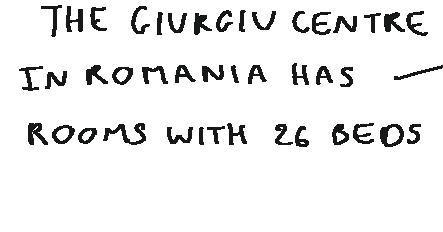 THE GIURGIU CENTRE
IN ROMANIA HAS —
ROOMS WITH 26 BEDS